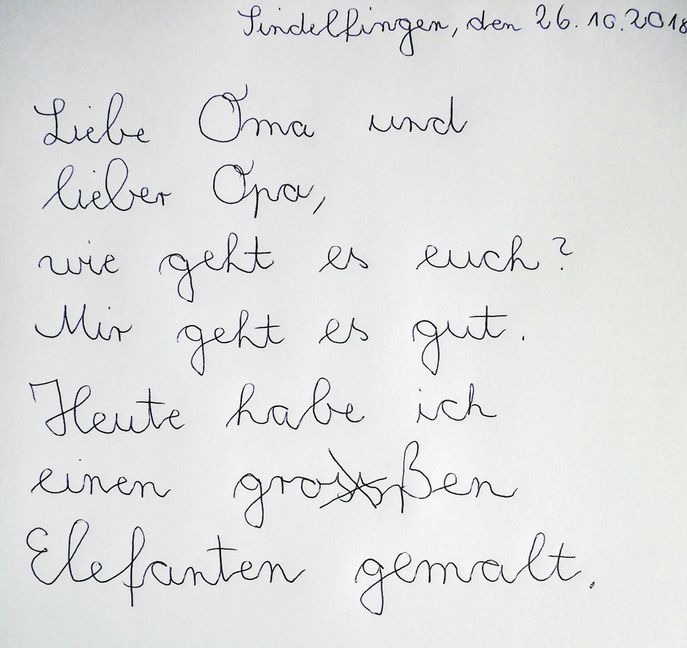 Sindelfingen, den 26.10.2018
Liebe Oma und
lieber Opa,
wie geht es euch?
Mir geht es gut.
Heute habe ich
einen großen
Elefanten gemalt.